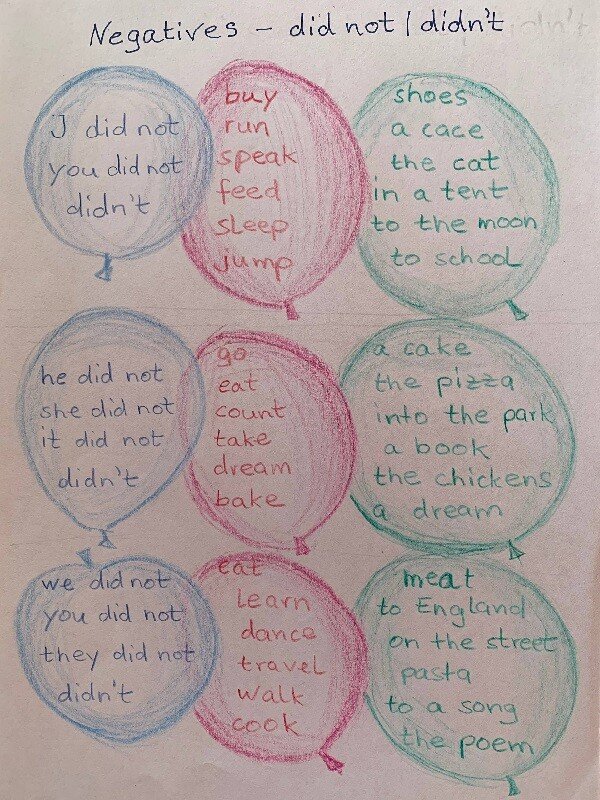 Negatives – did not / didn't
I did not
you did not
didn't
buy
run
speak
feed
sleep
jump
shoes
a cace
the cat
in a tent
to the moon
to school
he did not
she did not
it did not
didn't
go
eat
count
take
dream
bake
a cake
the pizza
into the park
a book
the chickens
a dream
we did not
you did not
they did not
didn't
eat
learn
dance
travel
walk
cook
meat
to England
on the street
pasta
to a song
the poem